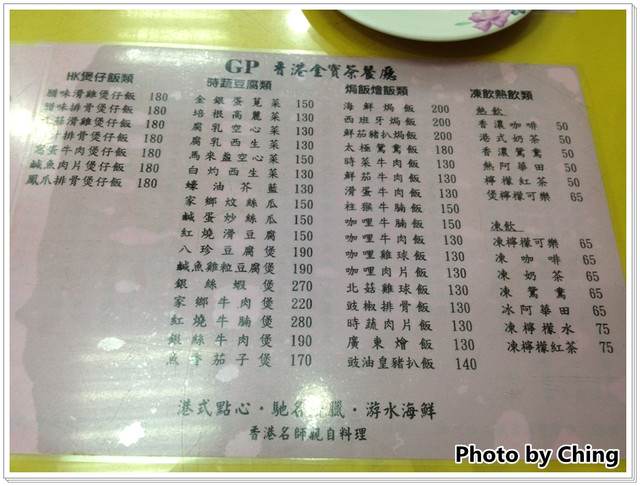 GP 香港金寶茶餐廳
HK煲仔飯類
臘味滑雞煲仔飯 180
臘味排骨煲仔飯 180
菇滑雞煲仔飯 180
汁排骨煲仔飯 180
窩蛋牛肉煲仔飯 180
鹹魚肉片煲仔飯 180
鳳爪排骨煲仔飯 180
時蔬豆腐類
金銀蛋莧菜 150
培根高麗菜 130
腐乳空心菜 130
腐乳西生菜 130
馬來盞空心菜 150
白灼西生菜 130
蠔油芥藍 130
家鄉炆絲瓜 150
鹹蛋炒絲瓜 150
紅燒滑豆腐 150
八珍豆腐煲 190
鹹魚雞粒豆腐煲 190
銀絲蝦煲 270
家鄉牛肉煲 220
紅燒牛腩煲 280
銀絲牛肉煲 190
魚香茄子煲 170
焗飯燴飯類
海鮮焗飯 200
西班牙焗飯 200
鮮茄豬扒焗飯 200
太極鴛鴦飯 180
時菜牛肉飯 130
鮮茄牛肉飯 130
滑蛋牛肉飯 130
柱猴牛腩飯 130
咖哩牛腩飯 130
咖哩牛肉飯 130
咖哩雞球飯 130
咖哩肉片飯 130
北菇雞球飯 130
豉椒排骨飯 130
時蔬肉片飯 130
廣東燴飯 130
豉油皇豬扒飯 140
凍飲熱飲類
熱飲
香濃咖啡 50
港式奶茶 50
香濃鴛鴦 50
熱阿華田 50
檸檬紅茶 50
煲檸檬可樂 65
凍飲
凍檸檬可樂 65
凍咖啡 65
凍奶茶 65
凍鴛鴦 65
冰阿華田 65
凍檸檬水 75
凍檸檬紅茶 75
港式點心・馳名臘・游水海鮮
香港名師親自料理
Photo by Ching